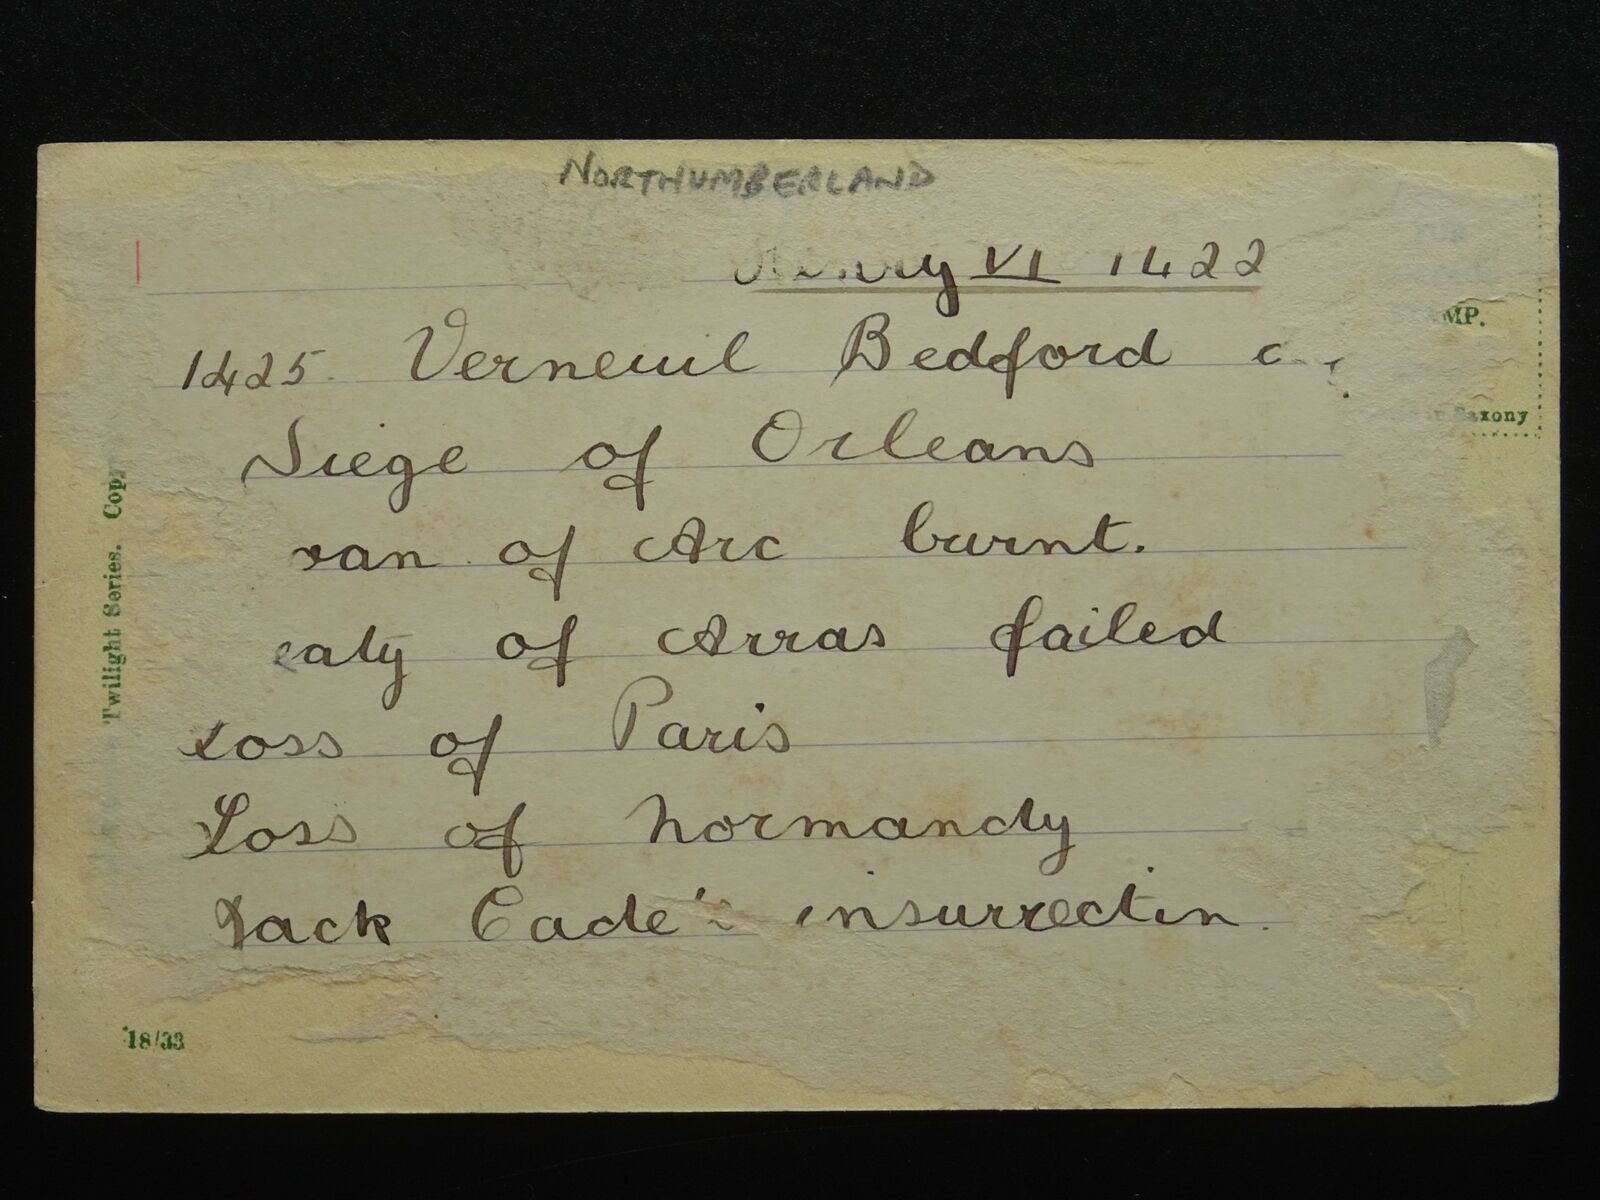 NORTHUMBERLAND
VI 1422
1425 Verneuil Bedford
Siege of Orleans
of Arc burnt.
of Arras failed
Loss of Paris
Loss of Normandy
Jack Cade's insurrectin
MP.
Saxony
Twilight Series. Cop
18/33